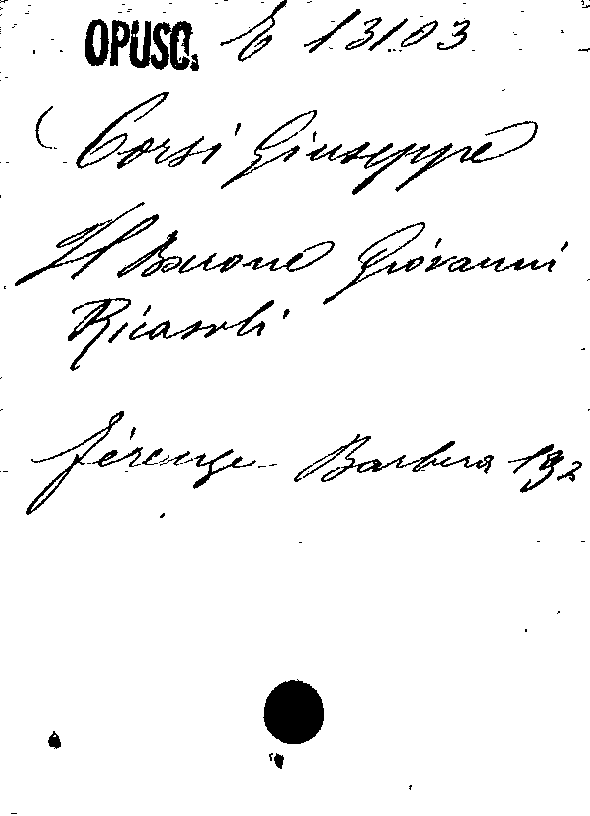 OPUSC. E 13103
Corsi Giuseppe
Il Barone Giovanni
Ricasoli
Firenze Barbera